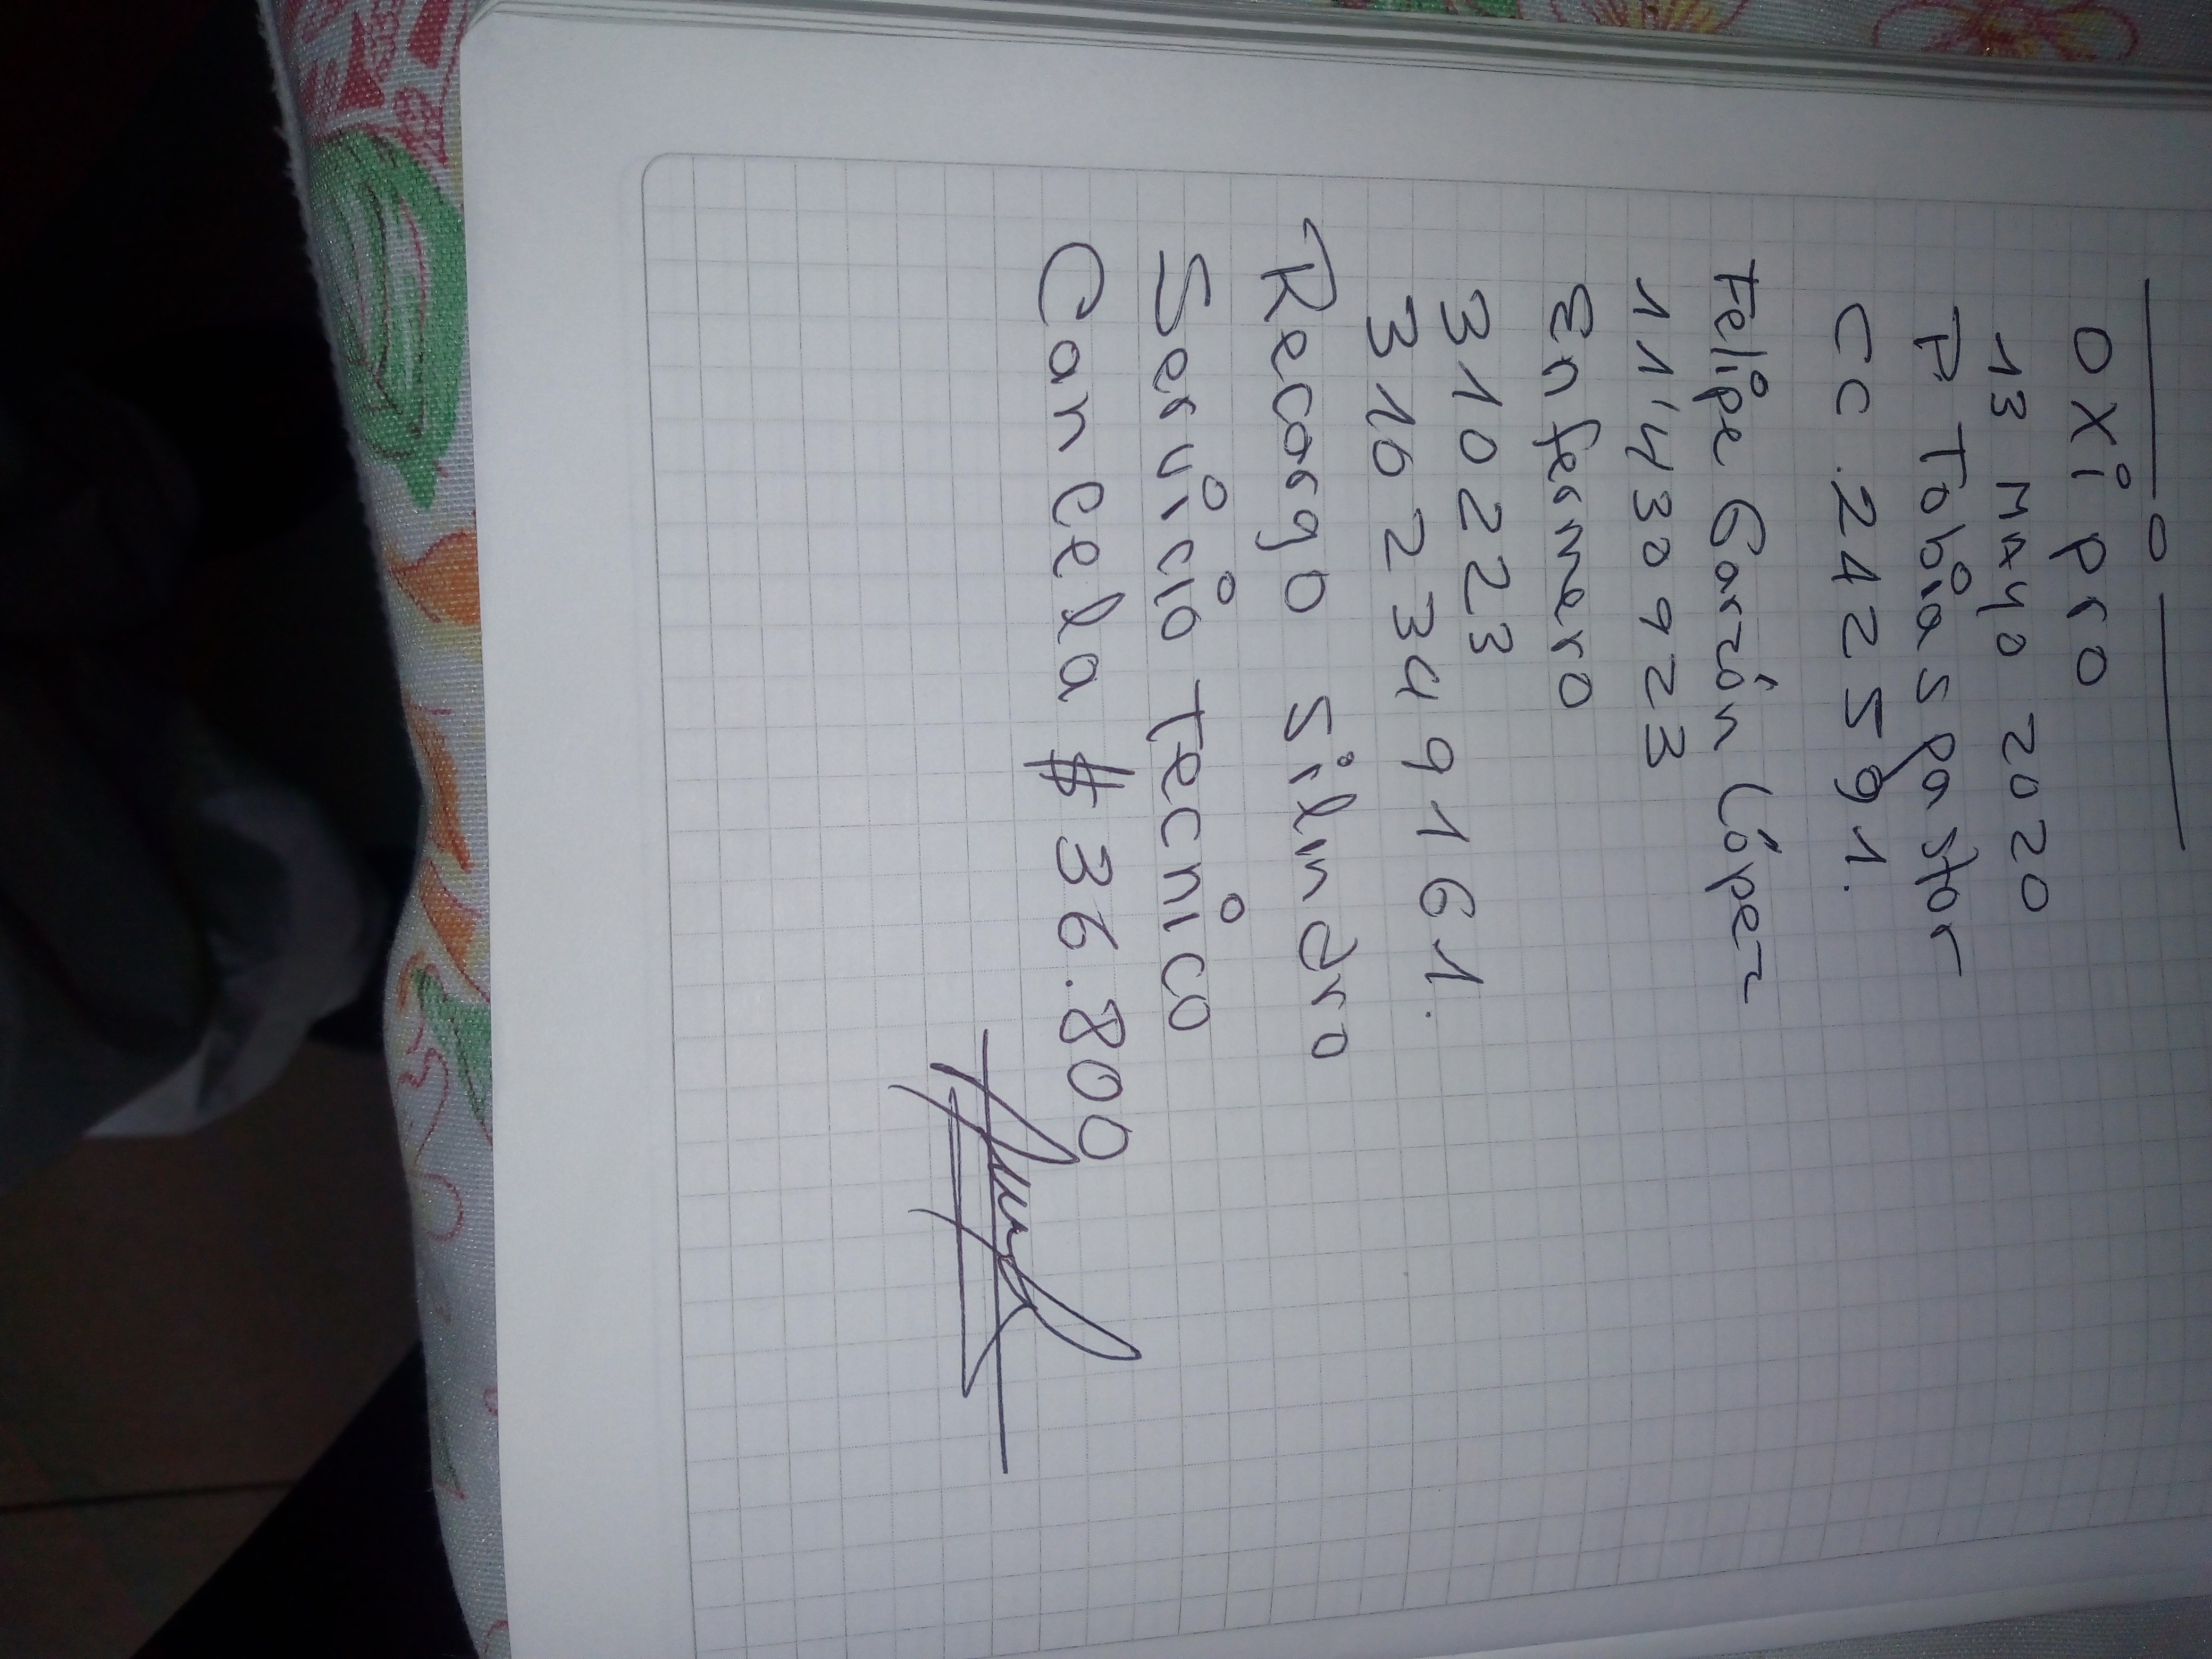 Oxi pro
13 MAYO 2020
P Tobias pastor
CC. 2425591.
Felipe Garzón López
114330923
Enfermero
310223
3162349161.
Recargo Silindro
Servicio Tecnico
Cancela $ 36.800